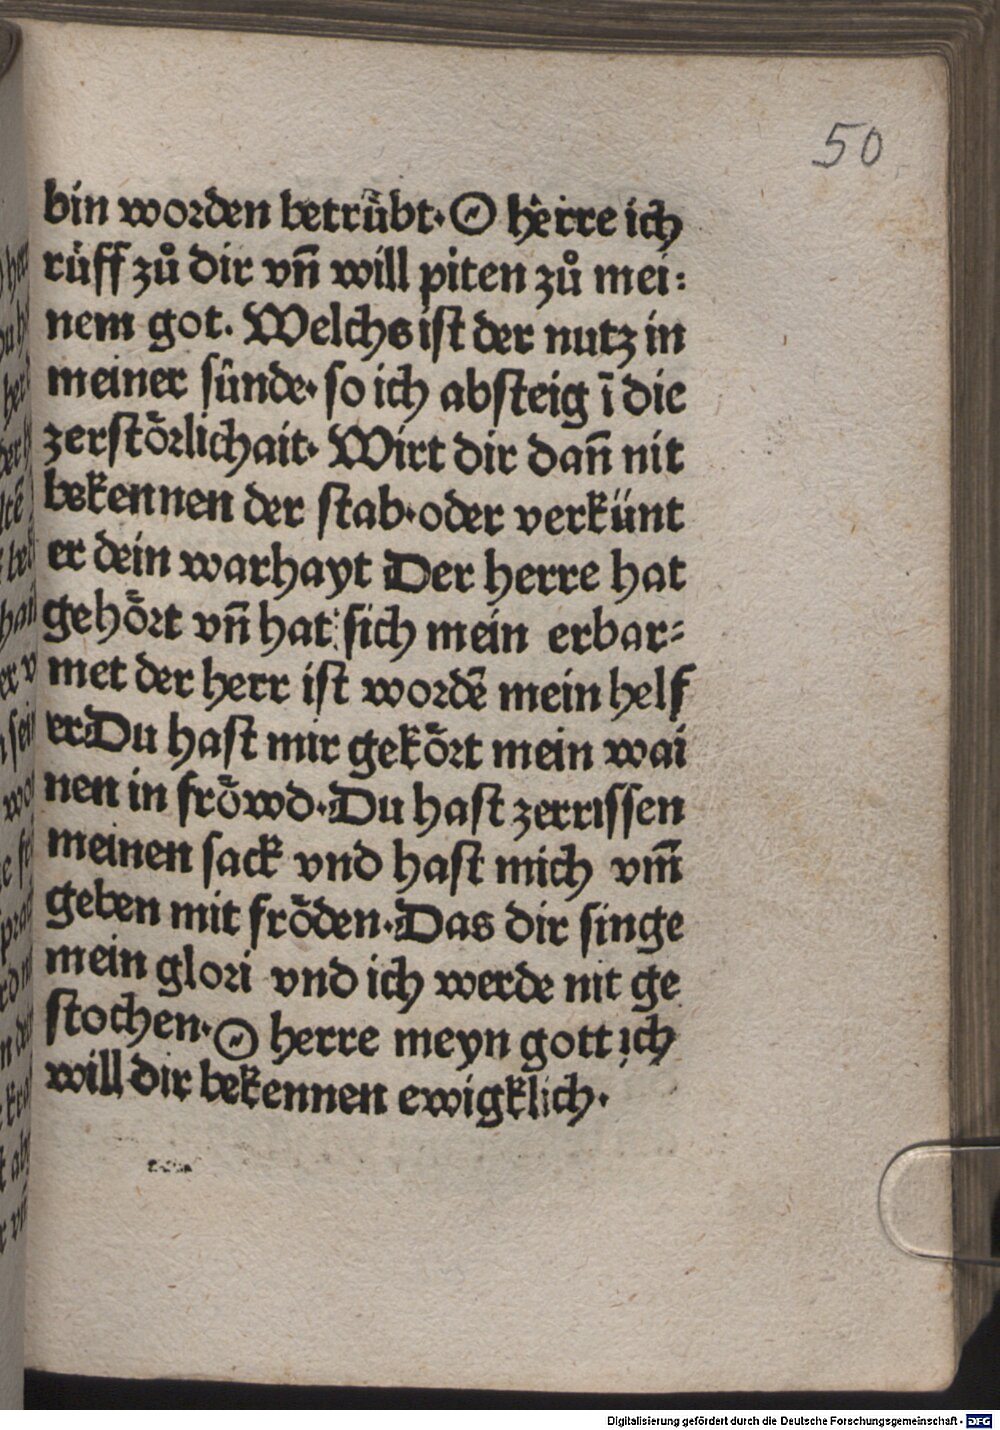 50
bin worden betrübt. O herre ich
rüff zů dir vñ will piten zů mei:
nem got. Welchs ist der nutz in
meiner sünde. so ich absteig ī die
zerstörlichait. Wirt dir dañ nit
bekennen der stab. oder verkünt
er dein warhayt Der herre hat
gehört vñ hat sich mein erbar⸗
met der herr ist wordē mein helf
er. Du hast mir gekört mein wai
nen in fröwd. Du hast zerrissen
meinen sack vnd hast mich vm̄
geben mit fröden. Das dir singe
mein glori vnd ich werde nit ge
stochen. O herre meyn gott ich
will dir bekennen ewigklich.
Digitalisierung gefördert durch die Deutsche Forschungsgemeinschaft - DFG